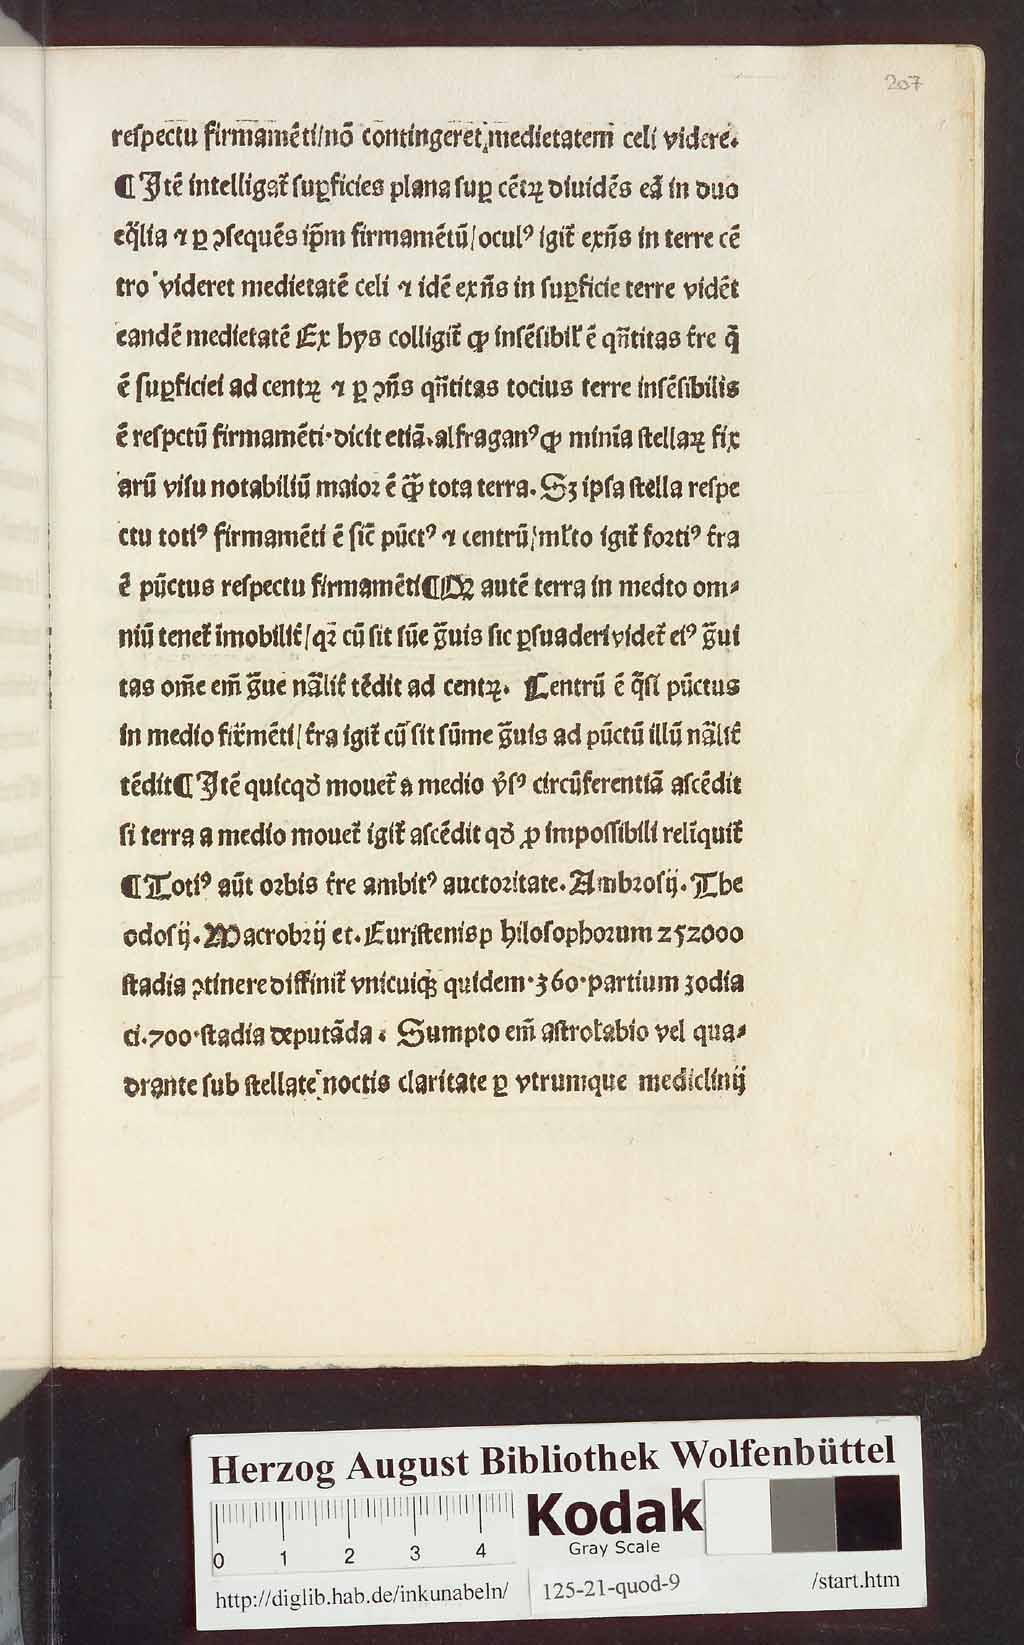 207
reſpectu firmamēti/nō contingeret medietatem celi videre.
¶ Itē intelligat̄ ſuꝑficies plana ſuꝑ cētꝝ diuidēs eā in duo
eq̄lia ⁊ ꝑ ꝯſequēs ip̄m firmamētū/oculꝰ igit̄ exn̄s in terre cē
tro videret medietatē celi ⁊ idē exn̄s in ſuꝑficie terre vidēt
eandē medietatē Ex hys colligit̄ ꝙ inſēſibil̓ ē qn̄titas t̓re q̄
ē ſuꝑficiei ad centꝝ ⁊ ꝑ ꝯn̄s qn̄titas tocius terre inſēſibilis
ē reſpctū firmamēti·dicit etiā.alfraganꝰ ꝙ minīa ſtellaꝝ fix
arū viſu notabiliū maior ē q̄ꝫ tota terra. Sꝫ ipſa ſtella reſpe
ctu totiꝰ firmamēti ē ſic̄ pūctꝰ ⁊ centrū/ml̓to igit̄ fortiꝰ t̓ra
ē pūctus reſpectu firmamēti¶Qꝛ autē terra in medto om⸗
niū tenet̄ īmobilit̓/qꝛ cū ſit sūe g̃uis ſic ꝑſuaderi videt̄ eiꝰ g̃ui
tas om̄e em̄ g̃ue nāl̓it̓ tēdit ad centꝝ. Centrū ē q̄ſi pūctus
in medio fir̄mēti/t̓ra igit̄ cū ſit sūme g̃uis ad pūctū illū nāl̓it̓
tēdit¶ Itē quicqď mouet̄ a medio v̓ſꝰ circūferentiā aſcēdit
ſi terra a medio mouet̄ igit̄ aſcēdit qď ꝓ impoſſibili relīquit̄
¶ Totiꝰ aūt orbis t̓re ambitꝰ auctoritate. Ambroſij. The
odoſij. Macrobrij et. Euriſtenisp hiloſophorum 252000
ſtadia ꝯtinere diffinit̄ vnicuiqꝫ quidem·360·partium zodia
ci.700·ſtadia deputāda. Sumpto em̄ aſtrolabio vel qua⸗
drante ſub ſtellate noctis claritate ꝑ vtrumque mediclinij
Herzog August Bibliothek Wolfenbüttel
0 1 2 3 4
Kodak
Gray Scale
http://diglib.hab.de/inkunabeln/ 125-21-quod-9 /start.htm